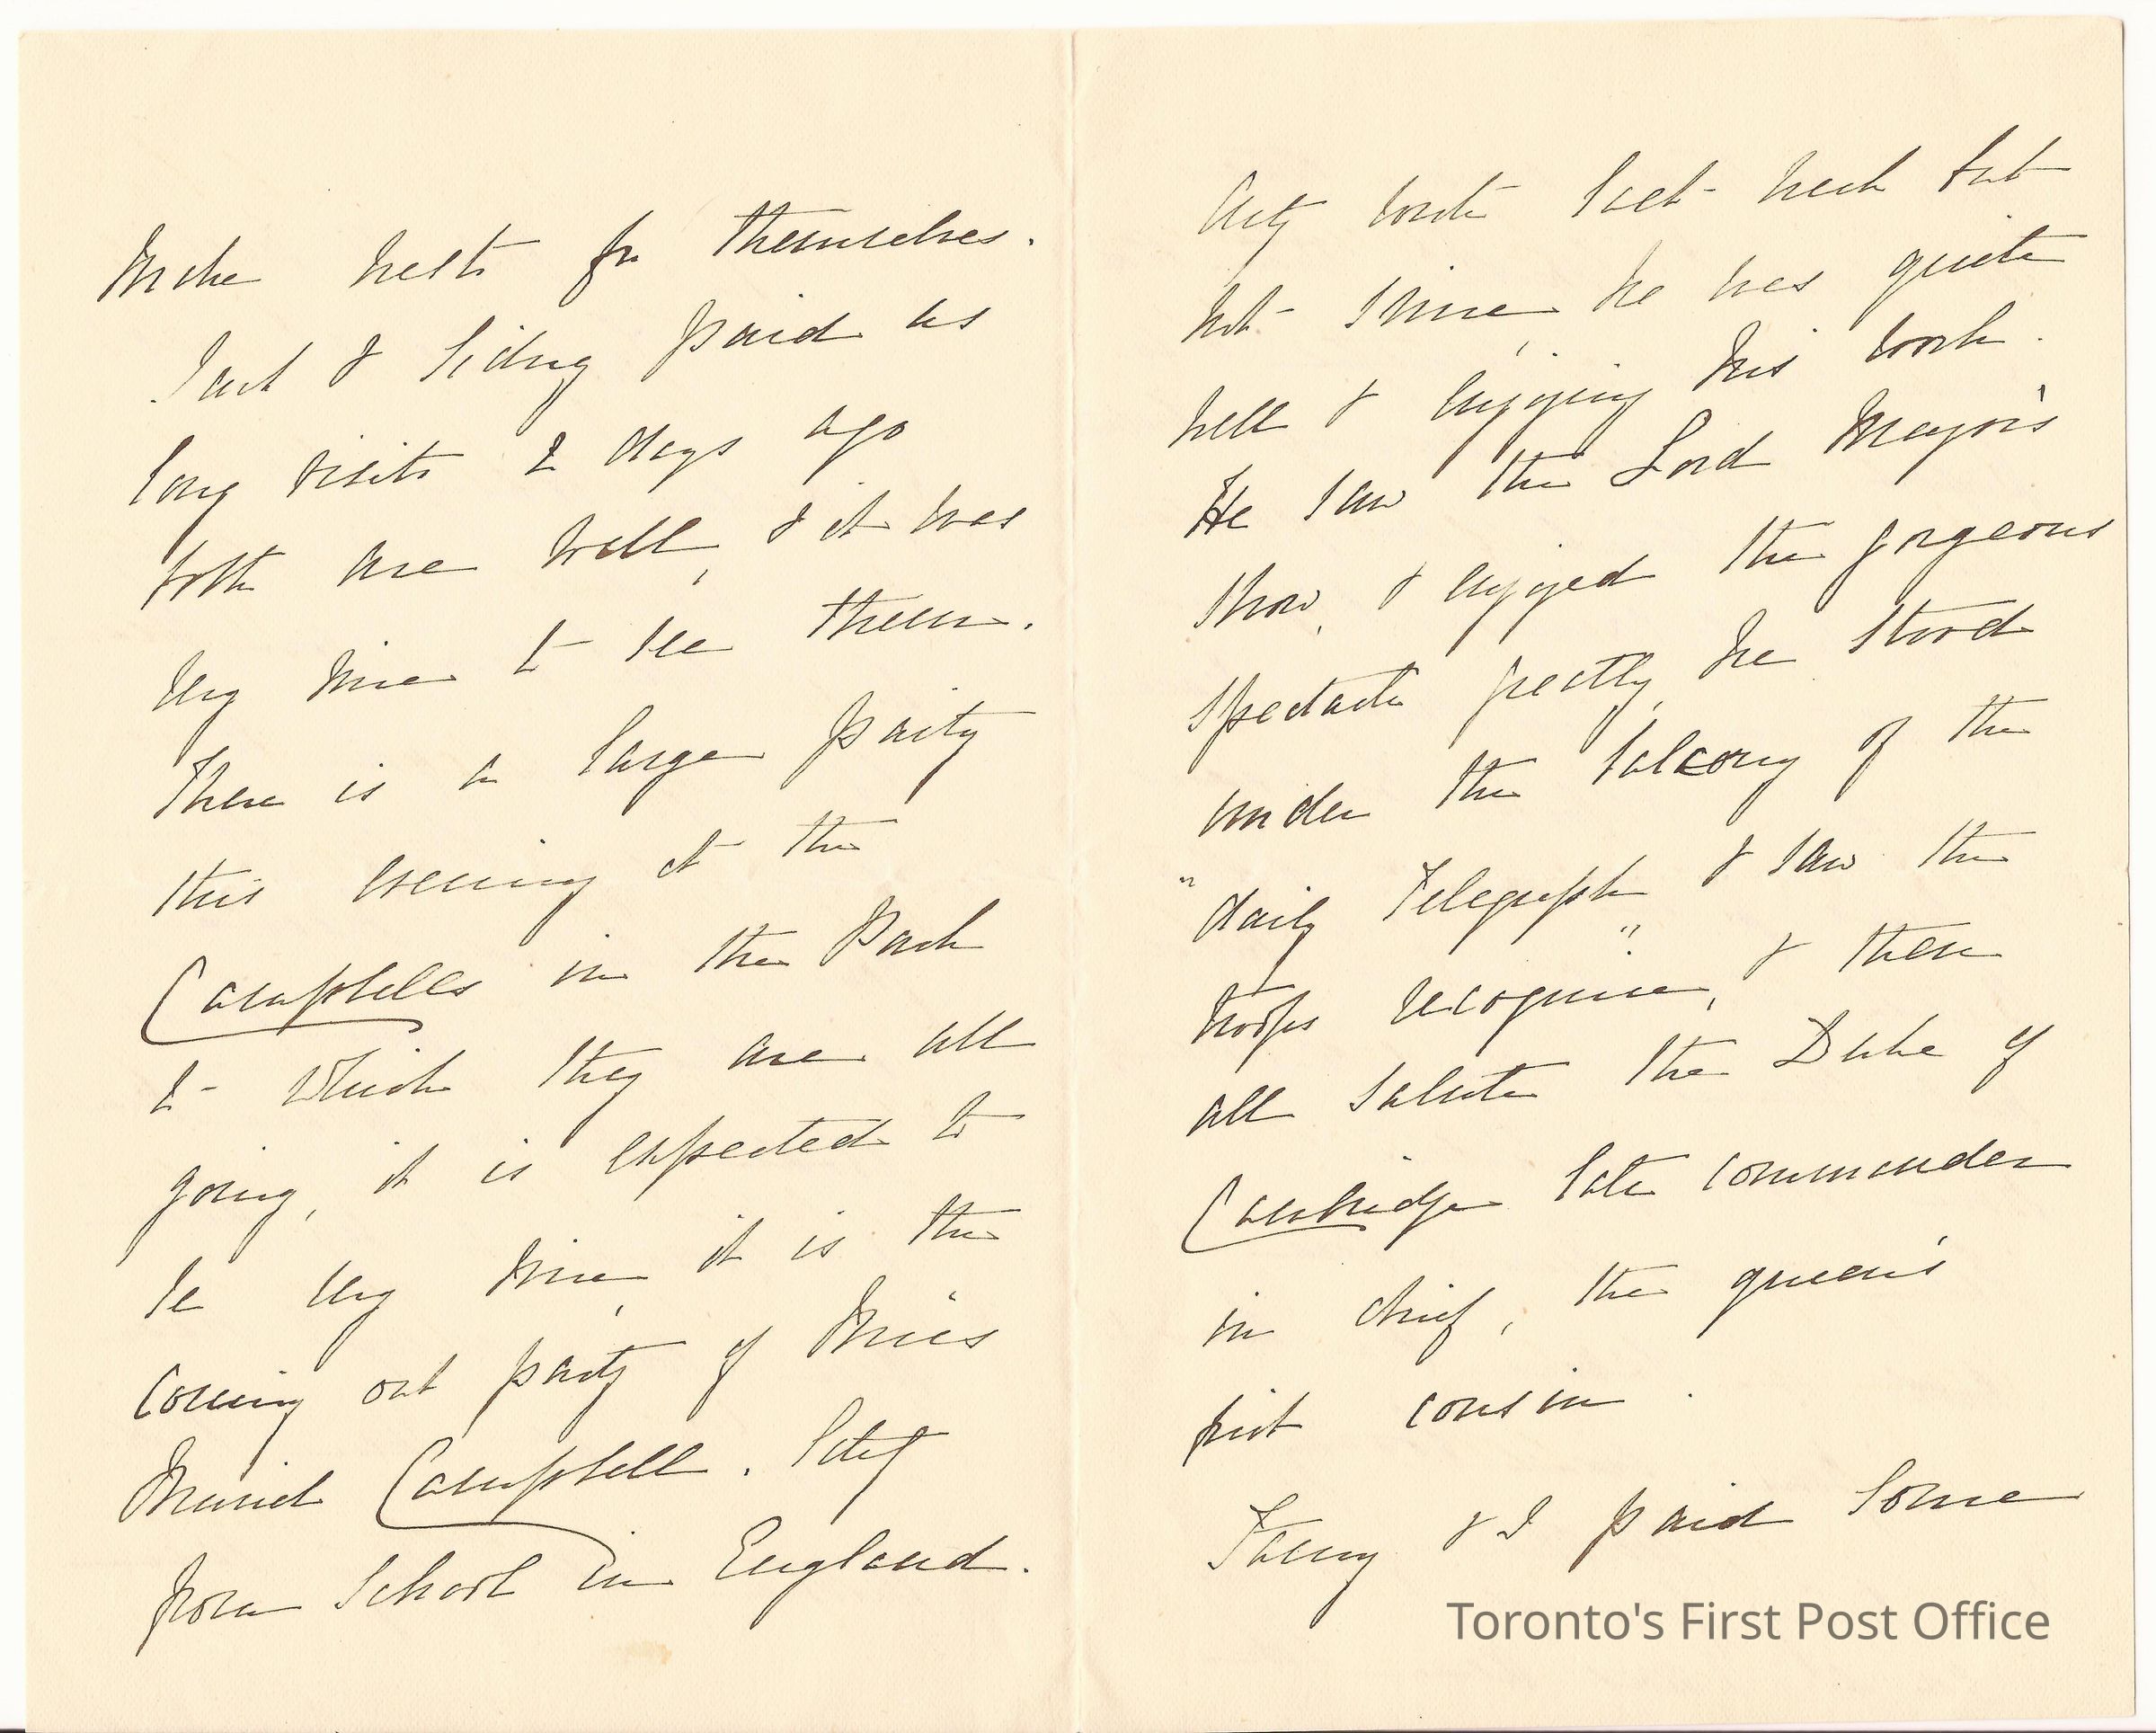 make nests for themselves.
Jack & Sidney paid us
long visits 2 days ago
both are well, & it was
very nice to see them.
There is a large party
this evening at the
Campbells in the Park
to which they are all
going, it is expected to
be very nice, it is the
coming out party of Miss
Muriel Campbell. lately
from School in England.
wrote last week but
not since, he was quite
well & enjoying his work.
He saw the Lord Mayor's
Show, & enjoyed the gorgeous
spectacle greatly, he stood
under the balcony of the
"daily Telegraph" & saw the
troops recognise, & then
all salute the Duke of
Cambridge late commander
in chief, the queen's
first cousin.
Fanny & I paid some
Toronto's First Post Office